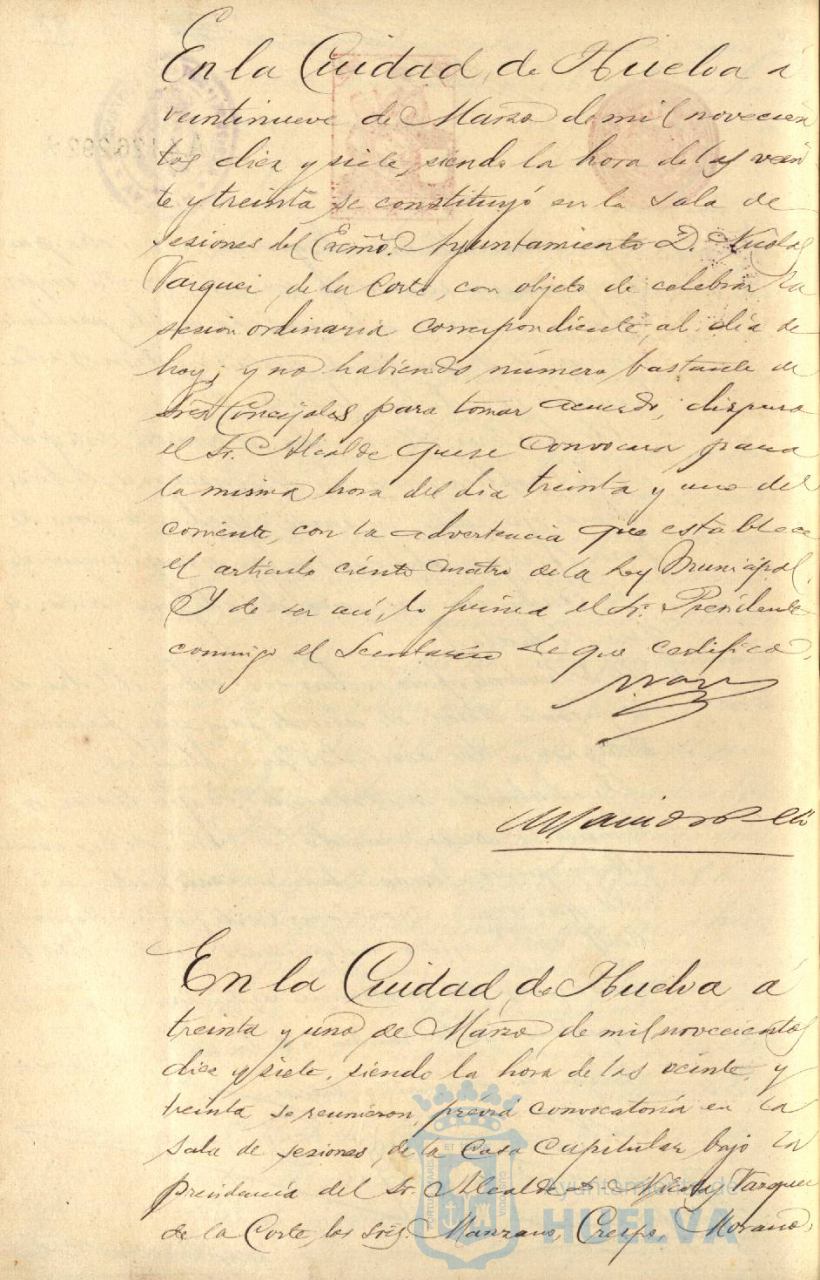 En la Ciudad de Huelva á
veintinueve de Marzo de mil novecien
tos diez y siete, siendo la hora de las vein
te y treinta se constituyó en la sala de
sesiones del Excmo. Ayuntamiento D. Nicolas
Vazquez de la Corte, con objeto de celebrar la
sesion ordinaria correspondiente al día de
hoy; y no habiendo número bastante de
Sres Concejales para tomar acuerdo, dispuso
el Sr. Alcalde que se convocara para
la misma hora del dia treinta y uno del
corriente, con la advertencia que establece
el artículo ciento cuatro de la Ley Municipal.
Y de ser así, lo firma el Sr. Presidente
conmigo el Secretario de que certifico.
En la Ciudad de Huelva á
treinta y uno de Marzo de mil novecientos
diez y siete, siendo la hora de las veinte y
treinta se reunieron, prévia convocatoria en la
sala de sesiones, de la Casa Capitular bajo la
presidencia del Sr. Alcalde D. Nicolas Vazquez
de la Corte, los Sres. Manzano, Crespo, Morano,
Ayuntamiento de
HUELVA